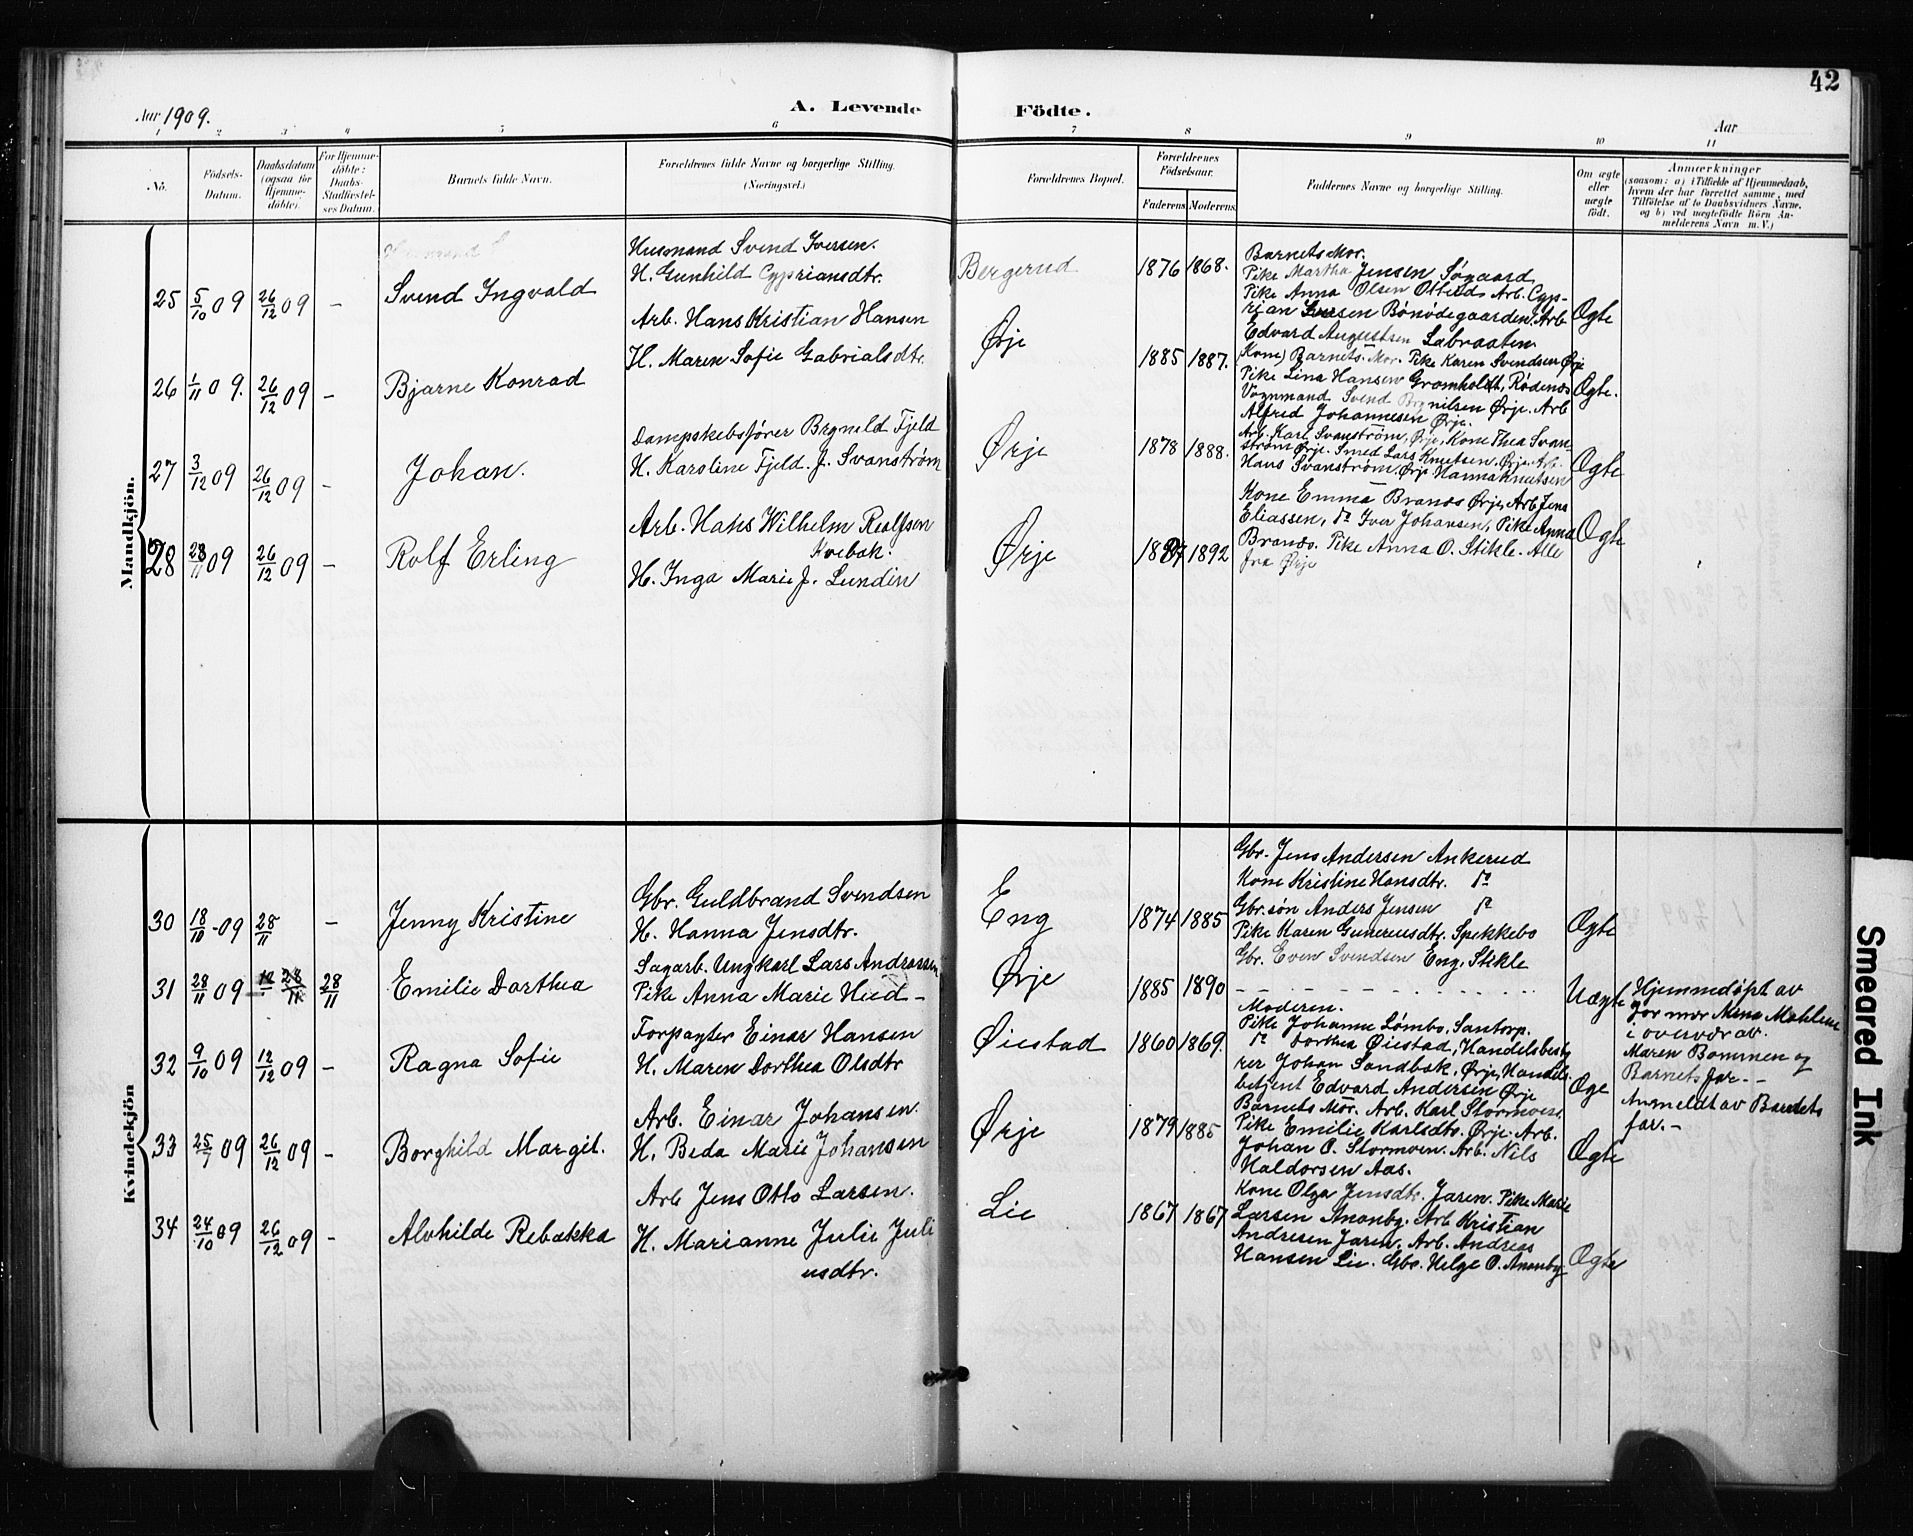 42
Aar 1909.
A. Levende Födte.
Aar
1 2 3 4 5 6 7 8 9 10 11
No.
Födsels-Datum.
Daabsdatum (ogsaa för Hjemme-döbte).
For Hjemme-döbte: Daabs-Stadfæstel-ses Datum.
Barnets fulde Navn.
Forældrenes fulde Navne og borgerlige Stilling. (Næringsvei.)
Forældrenes Bopæl.
Forældrenes Födselsaar.
Faderens. Moderens.
Faddernes Navne og borgerlige Stilling.
Om ægte eller uægte födt.
Anmærkninger
(saasom: a) i Tilfælde af Hjemmedaab, hvem der har forrettet samme, med Tilföielse af to Daabsvidners Navne, og b) ved uægtefödte Börn An-melderens Navn m. V.)
Mandkjön.
25 5/10 09 26/12 09 – Svend Ingvald
Husmand Svend Iversen.
H. Gunhild Cypriansdtr.
Bergerud 1876 1868.
Barnets Mor.
Pike Martha Jensen Søgaard
Pike Anna Olsen Otteid. Arb. Cyp-
rian Iversen Bönödegaarden. Arb
Edvard Augustsen Labraaten
Ogte
26 1/11 09. 26/12 09 – Bjarne Konrad
Arb. Hans Kristian Hansen
H. Maren Sofie Gabrialsdtr.
Ørje 1885 1887.
(Kone) Barnets Mor. Pike Karen Svendsen Ørje
Pike Lina Hansen Gromholdt, Rödenæs
Vognmand Svend Brynilsen Ørje. Arb
Alfred Johannesen Ørje.
Ogte.
27 3/12 09 26/12 09 – Johan.
Dampskebsfører Brynild Fjeld
H. Karoline Fjeld. J. Svanström
Ørje 1878 1888.
Arb. Karl Svanström, Ørje, Kone Thea Svan
ström Ørje. Smed Lars Knutsen. Ørje. Arb.
Hans Svanström, Ørje Hanna Knutsen
Ogte
28 28/11 09 26/12 09 – Rolf Erling
Arb. Hans Wilhelm Realfsen
Kvebak.
H. Inga Marie J. Lundin
Ørje 1887 1892
Kone Emma Brands Ørje, Arb Jens
Eliassen, do Iver Johansen, Pike Anna
Brands. Pike Anna O. Stikle. Alle
fra Ørje
Ogte
Kvindekjön
30 18/10 -09 28/11 – Jenny Kristine
Gbr. Guldbrand Svendsen
H. Hanna Jensdtr.
Eng 1874 1885
Gbr. Jens Andersen Ankerud
Kone Kristine Hansdtr. do
Gbr.søn Anders Jensen do
Pike Karen Gunereusdtr. Spekkebo
Gbr. Even Svendsen Eng, Stikle
Ogte
31 28/11 09 28/11 28/11 Emilie Dorthea
Sagarb. Ungkarl Lars Andrassen
Pike Anna Marie Hud –
Ørje 1885 1890
Uægte
Hjemmedöpt av
Jormor Mohlene
i overvær av
Maren Bommen og
Barnets far. –
Anmeldt av Barnets
far. –
32 9/10 09 12/12 09 – Ragna Sofie
Forpagter Einar Hansen
H. Maren Dorthea Olsdtr
Øiestad 1860 1869.
Moderen.
Pike Johanne Lømbo. Santorp.
do Dorthea Øiestad, Handelsbesty
rer Johan Sandbæk, Ørje, Handels-
betjent Edvard Andersen Ørje
Oge
33 25/7 09 26/12 09 – Borghild Margit.
Arb. Einar Johansen.
H. Beda Marie Johansen
Ørje 1879 1885
Barnets Mor. Arb. Karl Stormoen.
Pike Emilie Karlsdtr. Ørje. Arb.
Johan O. Stormoen. Arb. Nils
Haldorsen Aas.
Ogte
34 24/10 09 26/12 09 – Alvhilde Rebækka
Arb Jens Otto Larsen.
H. Marianne Julie Juli
usdtr.
Lie 1867 1867
Kone Olga Jensdtr. Jaren. Pike Marie
Larsen Anonby. Arb Kristian
Andresen Jaren. Arb. Andreas
Hansen Lie. Gbr. Helge O. Anonby
Ogte
Smeared Ink